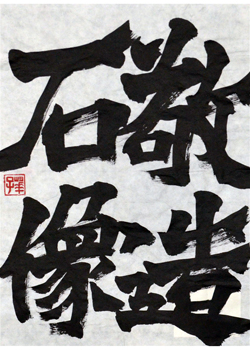 敬造
石像